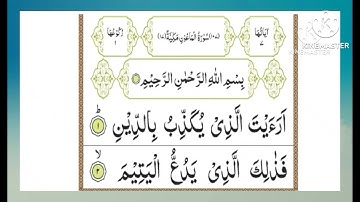 رُكُوْعُهَا ١
(١٠٧) سُوْرَةُ الْمَاعُوْنِ مَكِّيَّةٌ (١٧)
اٰيَاتُهَا ٧
KINEMASTER
بِسْمِ اللّٰهِ الرَّحْمٰنِ الرَّحِيْمِ
اَرَءَيْتَ الَّذِىْ يُكَذِّبُ بِالدِّيْنِ ؕ ١
فَذٰلِكَ الَّذِىْ يَدُعُّ الْيَتِيْمَ ۙ ٢